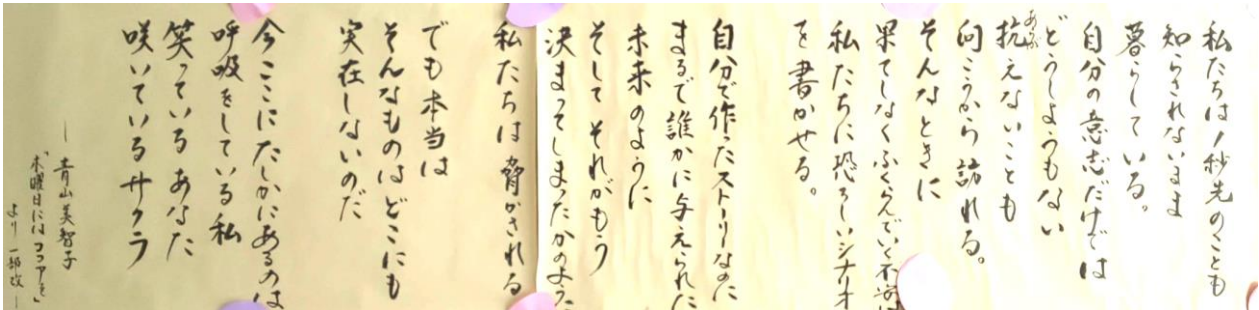 私たちは1秒先のことも
知らされないまま
暮らしている。
自分の意志だけでは
どうしようもない
あらが
抗えないことも
向こうから訪れる。
そんなときに
果てしなくふくらんでいく不安は
私たちに恐ろしいシナリオ
を書かせる。
自分で作ったストーリーなのに
まるで誰かに与えられた
未来のように
そして それがもう
決まってしまったかのよう
私たちは 脅かされる
でも本当は
そんなものはどこにも
実在しないのだ
今ここにたしかにあるのは
呼吸をしている私
笑っている あなた
咲いているサクラ
— 青山美智子
「木曜日にはココアを」
より 一部改 —